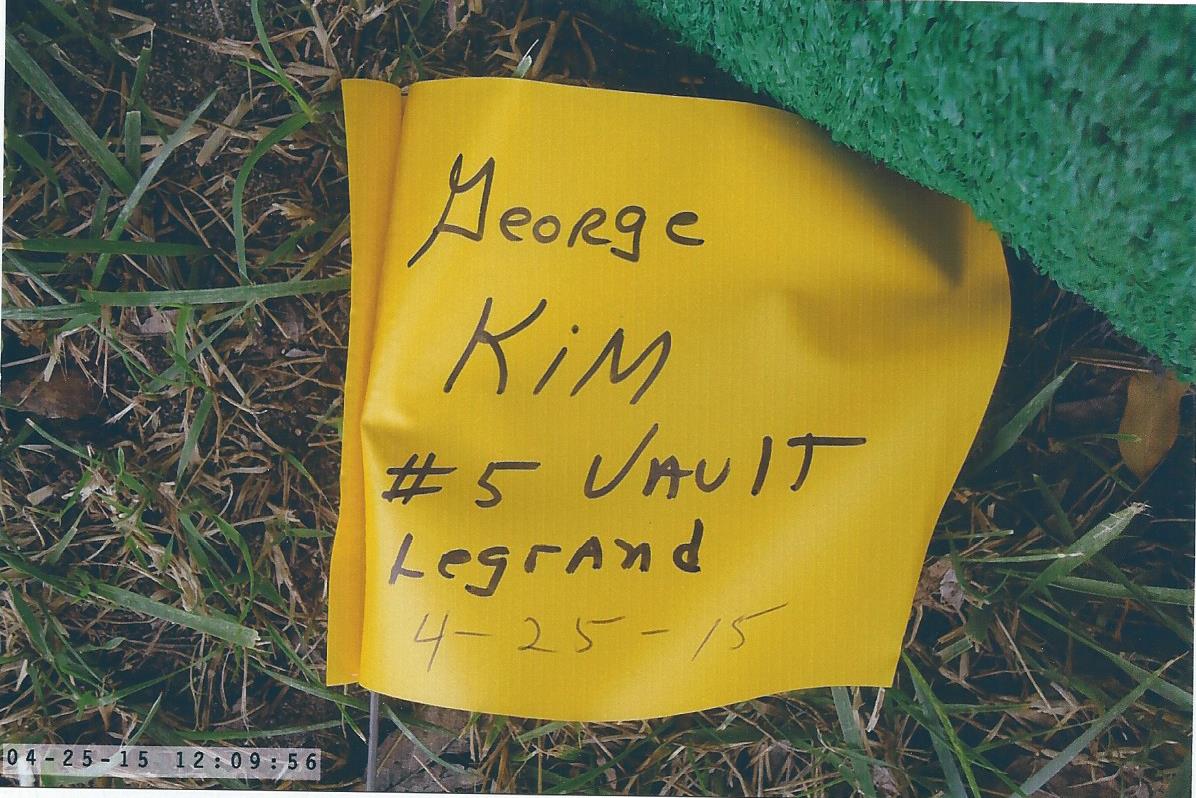 George
KiM
#5 VAUlT
LegrAnd
4-25-15
04-25-15 12:09:56